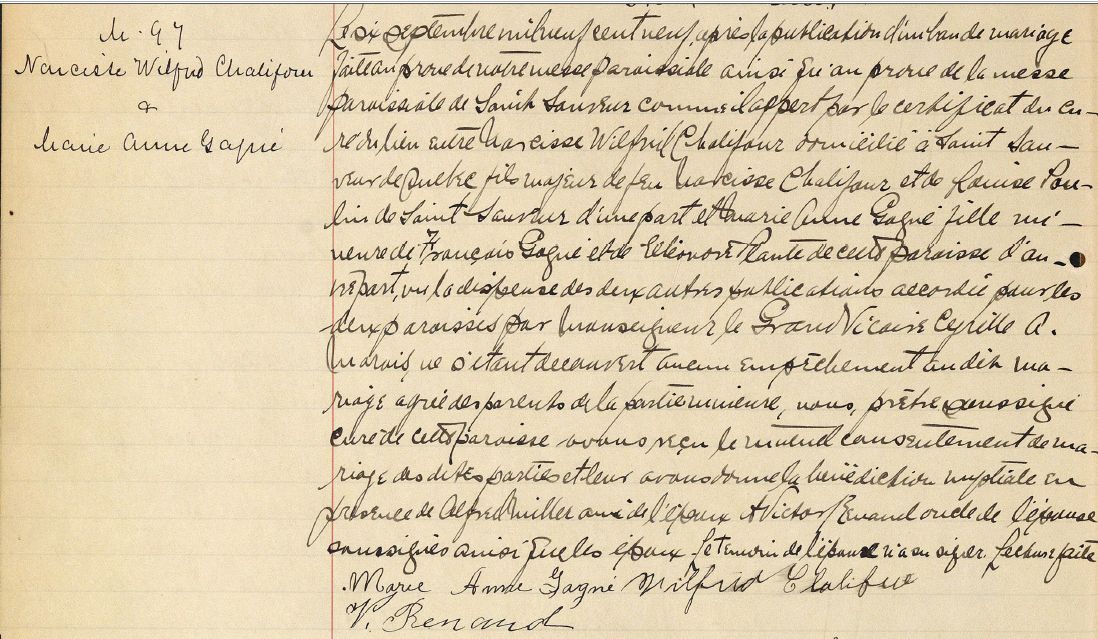 M. 97
Narcisse Wilfrid Chalifour
&
Marie Anne Gagné
Le six septembre mil neuf cent neuf, après la publication d'un ban de mariage
faite au prone de notre messe paroissiale ainsi qu'au prone de la messe
paroissiale de Saint Sauveur comme il appert par le certificat du cu-
ré du lieu entre Narcisse Wilfrid Chalifour domicilié à Saint Sau-
veur de Québec fils majeur de feu Narcisse Chalifour et de Louise Pou-
lin de Saint Sauveur d'une part et Marie Anne Gagné fille mi-
neure de François Gagné et de Eléonore Plante de cette paroisse d'au-
tre part, vu la dispense des deux autres publications accordée pour les
deux paroisses par Monseigneur le Grand Vicaire Cyrille A.
Marois, ne s'étant découvert aucun empêchement au dit ma-
riage agréé des parents de la partie mineure, nous, prêtre soussigné
curé de cette paroisse avons reçu le mutuel consentement de ma-
riage des dites parties et leur avons donné la bénédiction nuptiale en
présence de Alfred Miller ami de l'époux et Victor Renaud oncle de l'épouse
soussignés ainsi que les époux. Le témoin de l'époux n'a su signer. Lecture faite
Marie Anne Gagné Wilfrid Chalifour
V. Renaud